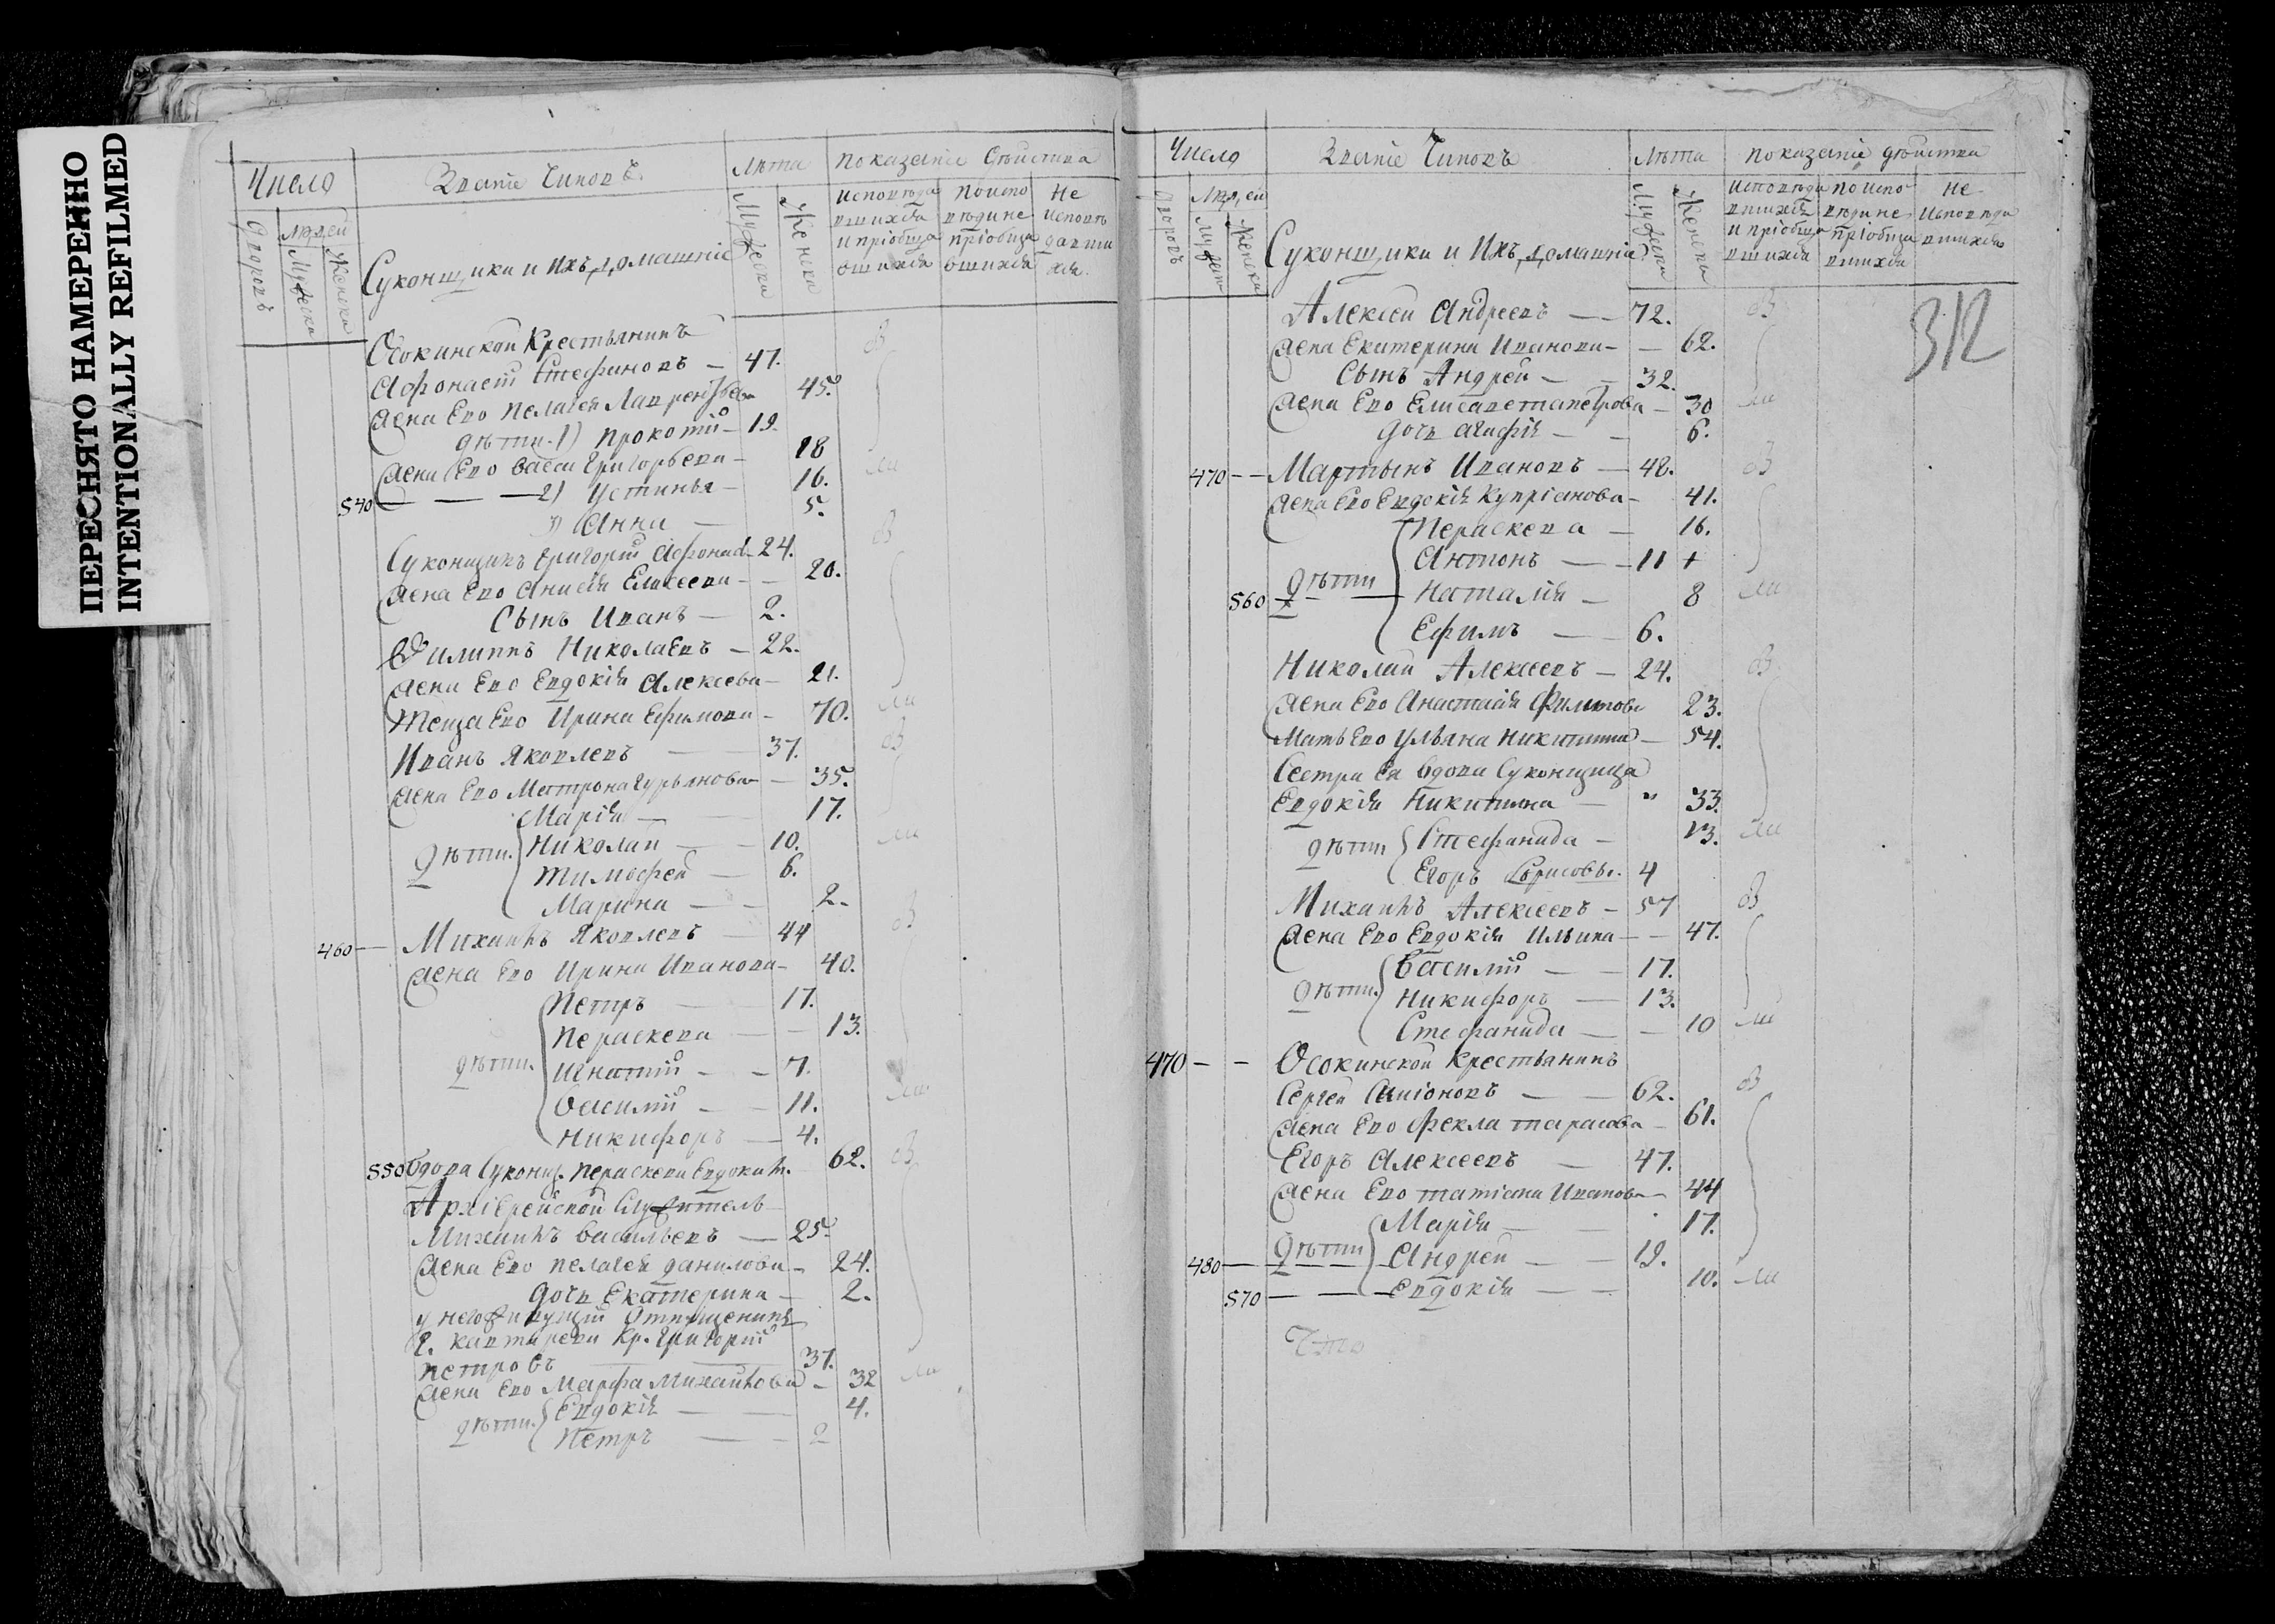 ПЕРЕСНЯТО НАМЕРЕННО
INTENTIONALLY REFILMED
Число
Званіе Чиновъ.
Лѣта
показаніе действиа
дворовъ
людей
Мужеска
Женска
Суконщики и ихъ домашніе
Мужеска
Женска
исповѣда
вшихся
и пріобща
вшихся
по испо
вѣди не
пріобща
вшихся
не
исповѣ
давши
хся.
Осокинской Крестьянинъ
Афонасей Стефановъ — 47.
Жена Ево Пелагея Лаврентьева 45.
дѣти. 1) Прокопій — 19.
Жена Ево Васса Григорьева — 18
540 — — — 2) Устинья — 16.
3) Анна — 5.
Суконщикъ Григорій Афонас. 24.
Жена Ево Анисія Елисеева — 20.
Сынъ Иванъ — 2.
Филиппъ Николаевъ — 22.
Жена Ево Евдокія Алексеева — 21.
Теща Ево Ирина Ефимова — 70.
Иванъ Яковлевъ — 37.
Жена Ево Матрона Гурьянова — 35.
Марія — 17.
дѣти. Николай — 10.
Тимофей — 6.
Марина — 2.
460 — Михаилъ Яковлевъ 44
Жена Ево Ирина Иванова — 40.
Петръ — 17.
Параскева — 13.
дѣти. Игнатій — 7.
Василій — 11.
Никифоръ — 4.
550 Вдова Суконщ. Параскева Евдоким. 62.
Архіерейской Служитель
Михаилъ Васильевъ — 25.
Жена Ево Пелагея Данилова — 24.
Дочь Екатерина — 2.
у него живущій Отпущенникъ
Г. Кр. Григорій
Петровъ — 37.
Жена Ево Марфа Михайлова — 32
дѣти. Евдокія — 4.
Петръ — 2
Число
Званіе Чиновъ
Лѣта
показаніе действиа
дворовъ
людей
Мужеск
Женска
Суконщики и ихъ домашніе
Мужеска
Женска
исповѣда
вшихся
и пріобща
вшихся
по испо
вѣди не
пріобща
вшихся
не
исповѣда
вшихся
312
Алексей Андреевъ — 72.
Жена Екатерина Иванова — 62.
Сынъ Андрей — 32.
Жена Ево Елисавета Петрова — 30
Дочь Агафія — 6.
470 — Мартынъ Ивановъ — 48.
Жена Ево Евдокія Купріанова — 41.
Параскева — 16.
Антонъ — 11 +
560 — дѣти — Наталія — 8
Ефимъ — 6.
Николай Алексеевъ — 24.
Жена Ево Анастасія Филипова 23.
Мать Ево Ульяна Никитина — 54.
Сестра Ея Вдова Суконщица
Евдокія Никитина — " 33.
дѣти Стефанида — 13.
Егоръ Борисовы. 4
Михаилъ Алексеевъ — 57
Жена Ево Евдокія Ильина — 47.
Василій — 17.
дѣти. Никифоръ — 13.
Стефанида — 10
470 — — Осокинской Крестьянинъ
Сергей Симіоновъ — 62.
Жена Ево Фекла Тарасова — 61.
Егоръ Алексеевъ — 47.
Жена Ево Татіана Иванова — 44
Марія — 17.
480 — дѣти — Андрей — 19.
570 — — — Евдокія — 10.